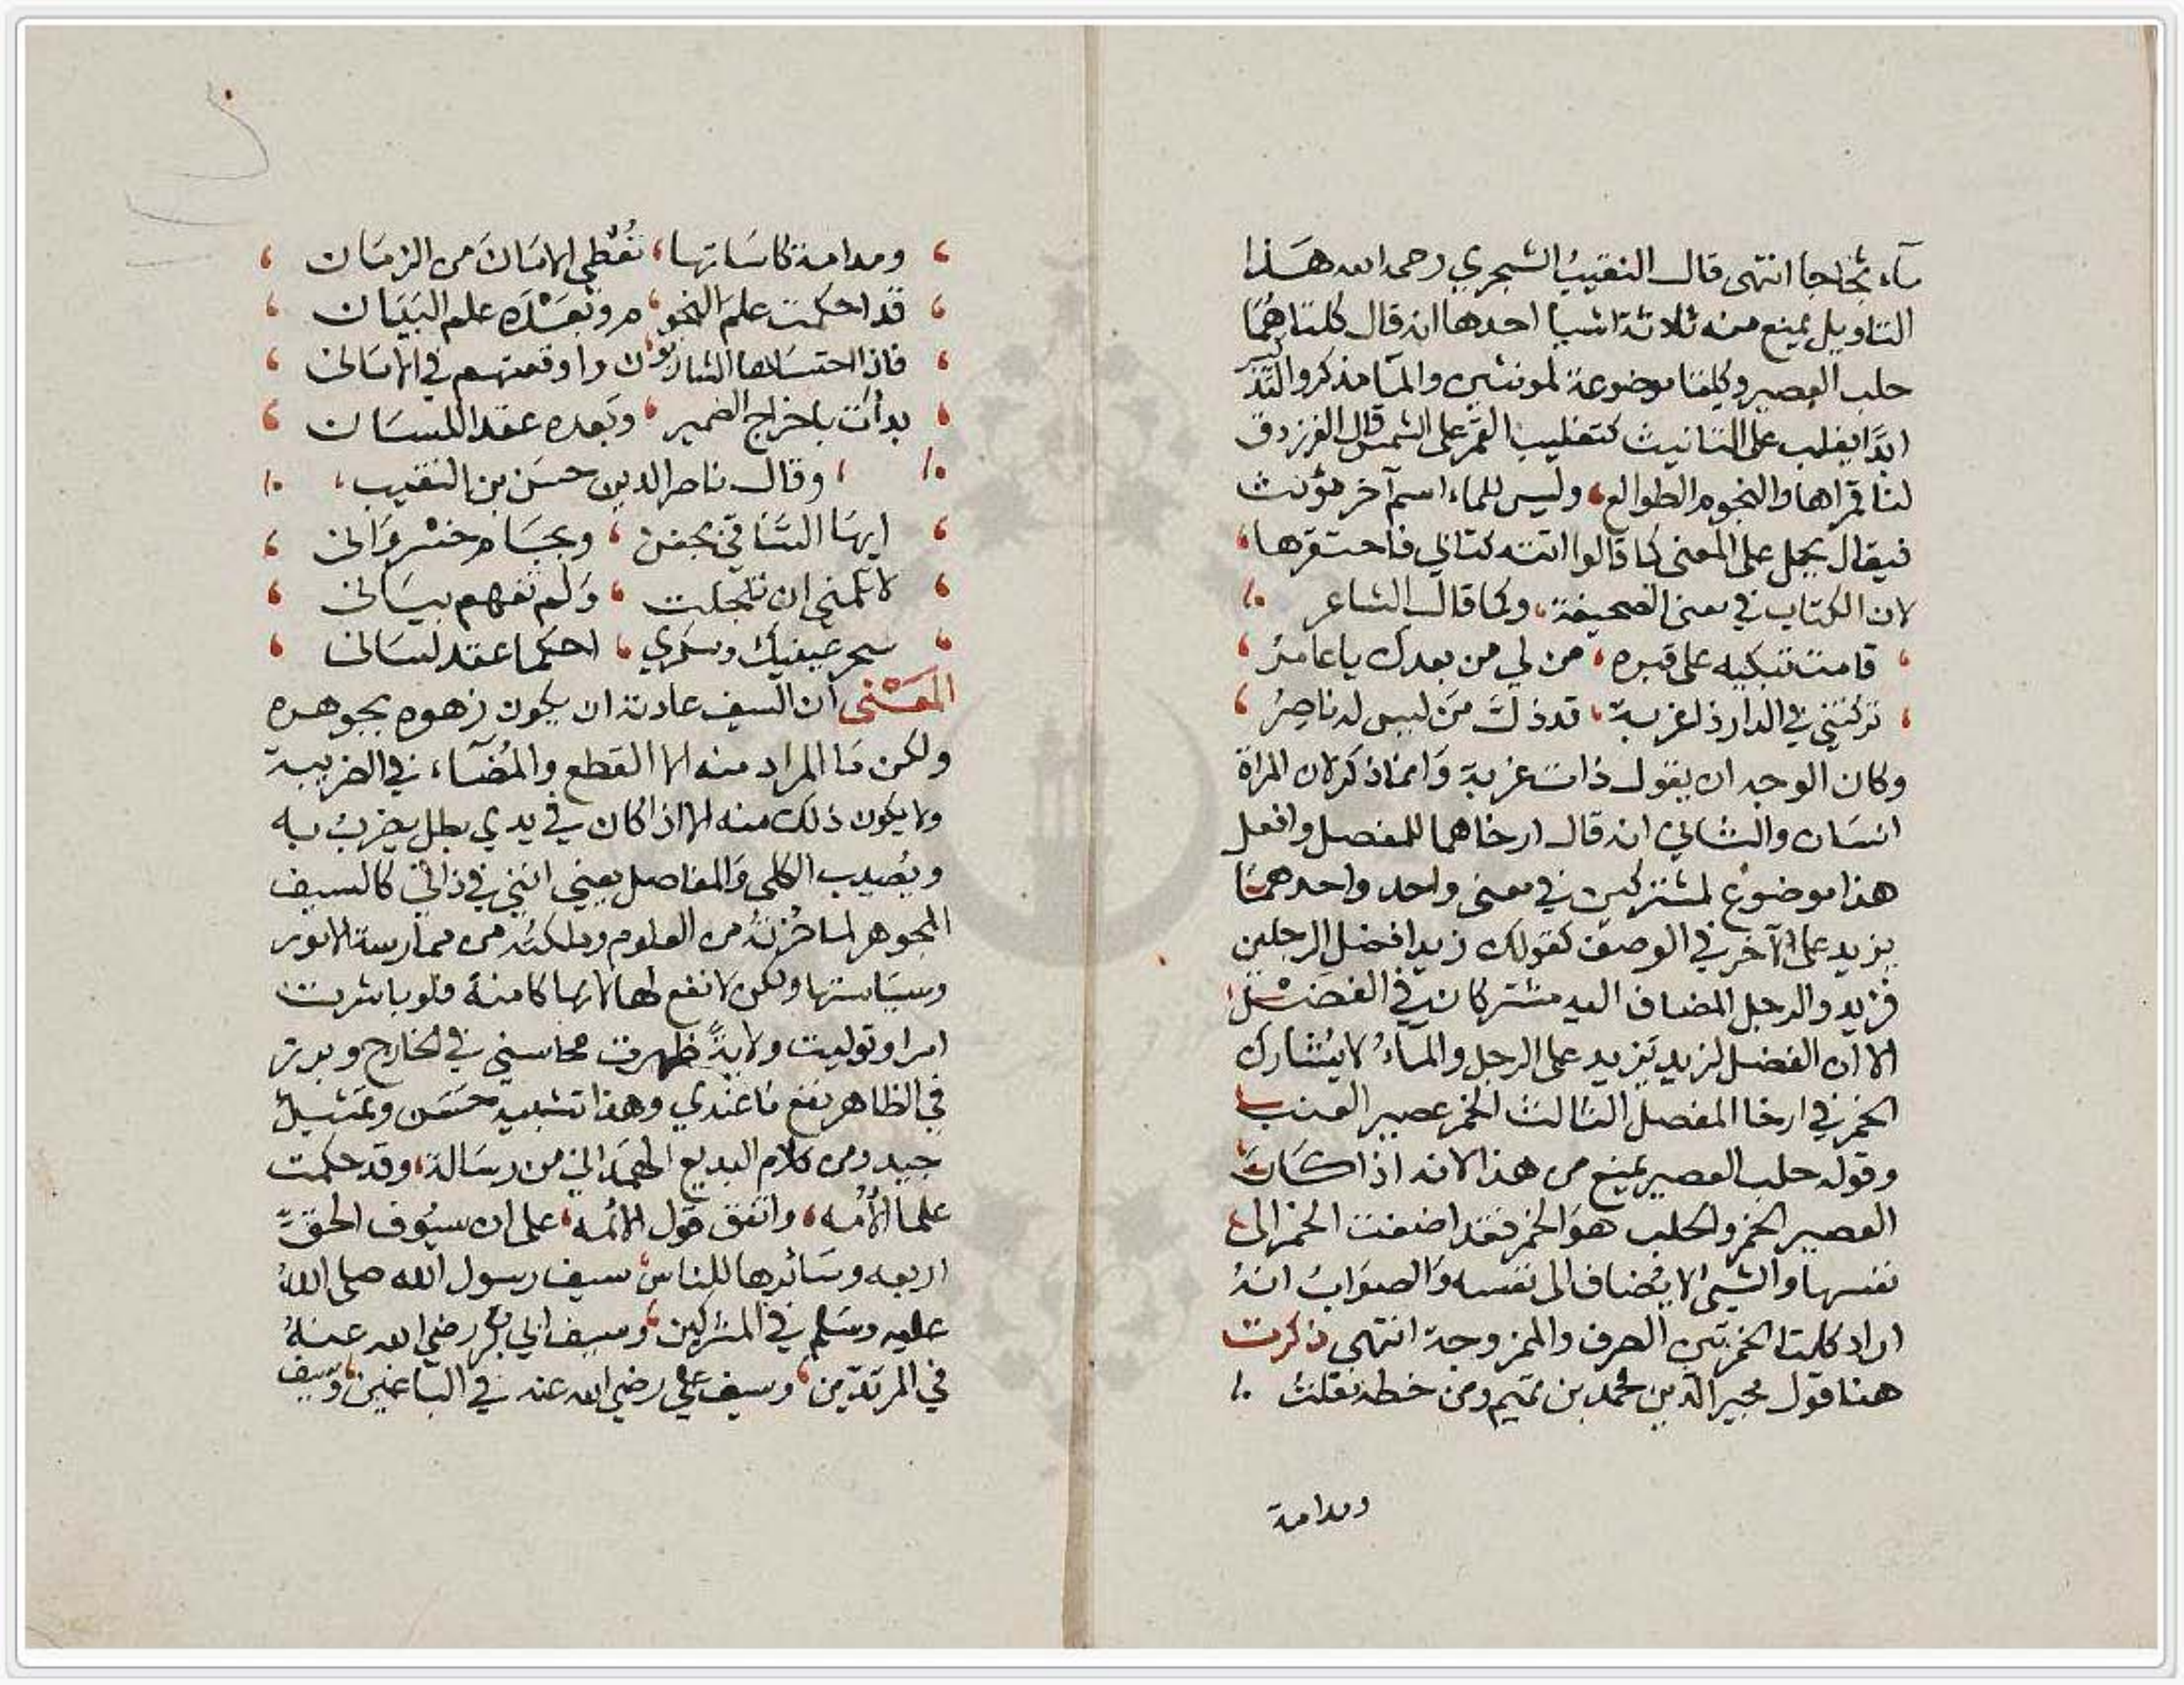 ماء ثجاجا انتهى قال النقيب الشجري رحمه الله هذا
التاويل يمنع منه ثلاثة اشيا احدها انه قال كلتاهما
حلب العصير وكلتا موضوعة لمونثين والما مذكر والتذكير
ابدًا يغلب على التانيث كتغليب القمر على الشمس قال الفرزدق
لنا قمراها والنجوم الطوالع، وليس للماء اسم آخر مؤنث
فيقال يحمل على المعنى كما قالوا اتته كتابي فاحتقرها،
لان الكتاب في معنى الصحيفة، وكما قال الشاعر
قامت تبكيه على قبره، من لي من بعدك يا عامرُ
تركتني في الدار ذا غربة، قد ذلّ مَن ليس له ناصِرُ
وكان الوجه ان يقول ذات غربة وانما ذكر لان المراة
انسان والثاني انه قال ارخاهما للمفصل وافعل
هذا موضوع لمشتركين في معنى واحد واحدهما
يزيد على الآخر في الوصف كقولك زيد افضل الرجلين
فزيد والرجل المضاف اليه مشتركان في الفضل
الا ان الفضل لزيد يزيد على الرجل والماءُ لا يشارك
الخمر في ارخا المفصل الثالث الخمر عصير العنب
وقوله حلب العصير يمنع من هذا لانه اذا كان
العصير الخمر والحلب هو الخمر فقد اضفت الخمر الى
نفسها والشي لا يُضاف الى نفسه والصوابُ انهُ
اراد كلتا الخمرتين الصرف والممزوجة انتهى ذكرت
هنا قول مجير الدين محمد بن تميم ومن خطه نقلت
ومدامة
ومدامة كاساتها، تُعْطي الامَانَ من الزمَان
قد احكمت علم النحو، م وبَعْدَه علم البَيَان
فاذا احتسَاها الشاربون واوقعتهم في الامانى
بدأت باخراج الضمير، وبَعده عقد اللسَان
، وقال ناصر الدين حسَن بن النقيب،
ايهَا السَّاقي بجفن، وبجَام خسْروَانى
لا تلمني ان تلجلجت، وَلم تفهم بيَانى
سحر عينيك وسكري، احكما عقد لسَانى
المَعْنى ان السيف عادته ان يكون زهوه بجوهره
ولكن مَا المراد منه الا القطع والمُضَآء في الضريبة
ولا يكون ذلك منه الا اذا كان في يدي بطل يضربُ به
ويُصيب الكلى وَالمفاصل يعني انني في ذاتي كالسيف
المجوهر لما حُزتهُ من العلوم وملكتهُ من ممارسة الامور
وسيَاستها ولكن لا نفع لها لانها كامنة فلو باشرت
امرا وتوليت ولايةً ظهرت محاسني في الخارج وبرز
في الظاهر نفع مَا عندي وهذا تشبيه حسَن وتمثيلٌ
جيد ومن كلام البديع الهمَداني من رسَالة، وقد حكمت
علما الأمُة، واتفق قول الائمة، على ان سيُوف الحقّ
اربعه وسَائرها للناس، سيف رسول الله صلى اللهُ
عليه وسَلم في المشركين، وسيف ابي بكر رضي الله عنهُ
في المرتدّين، وسيف علي رضي الله عنه في الباغين، وسيف